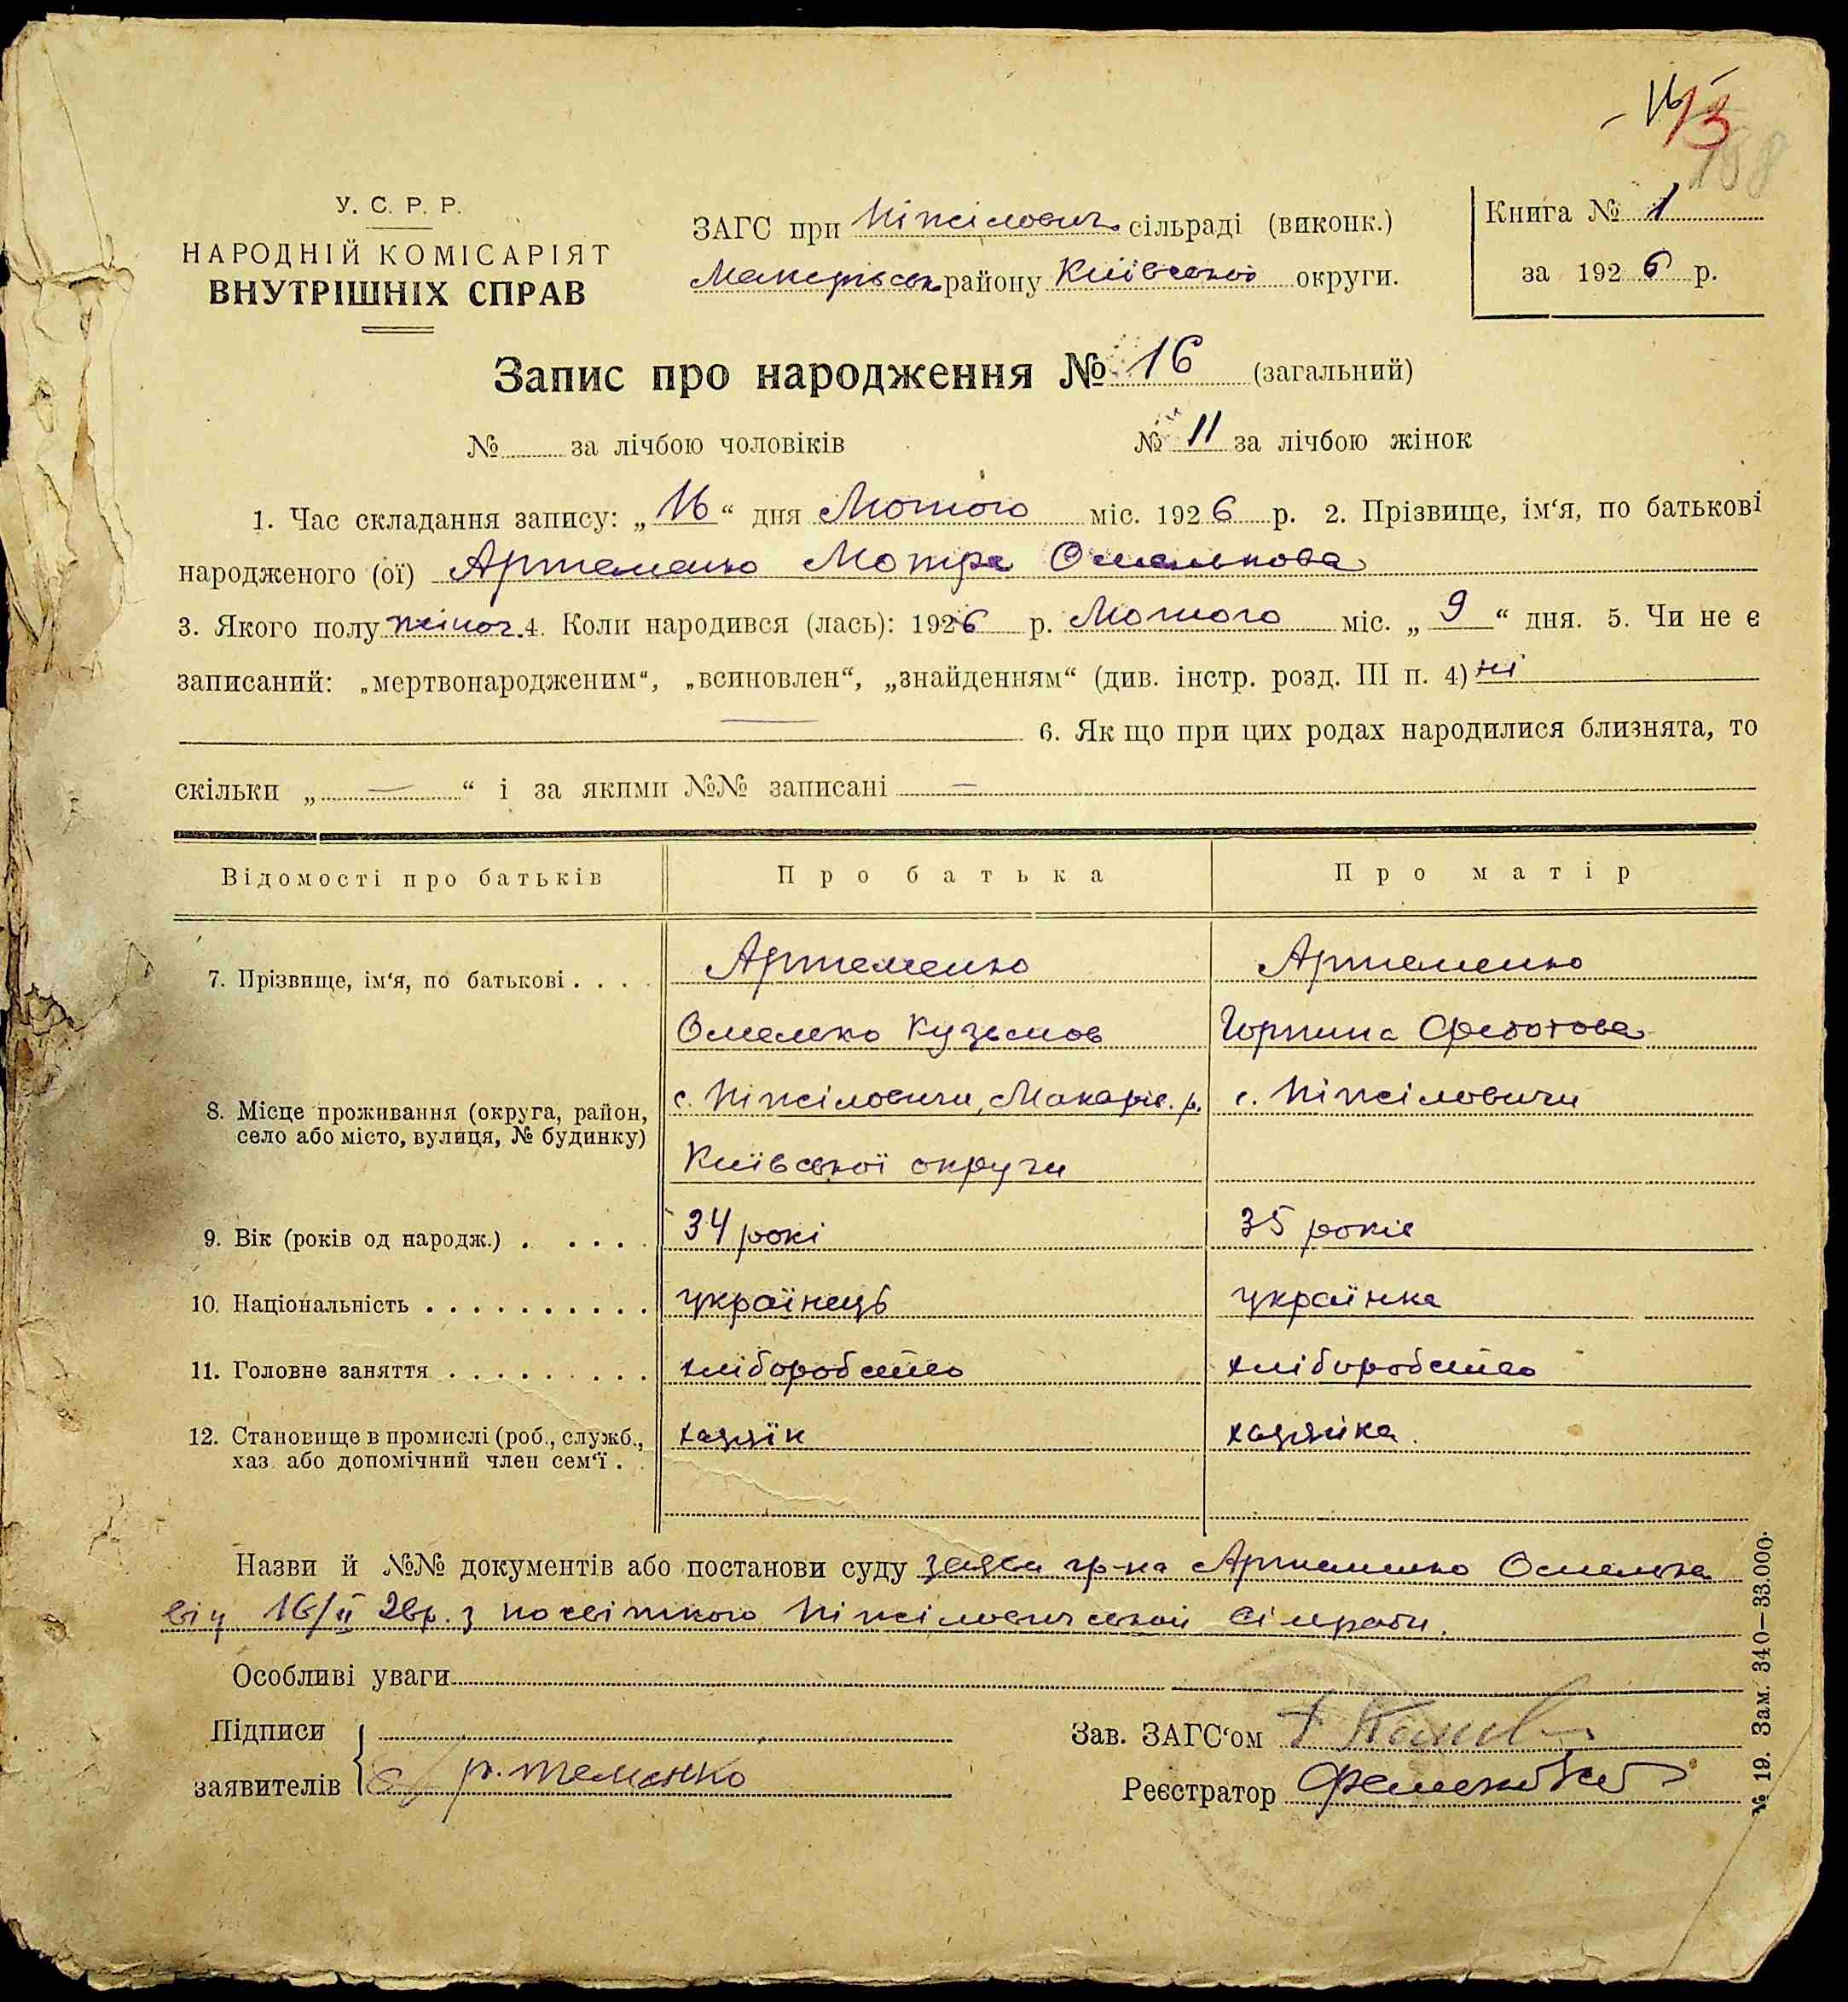 13
188
У. С. Р. Р.
НАРОДНІЙ КОМІСАРІЯТ
ВНУТРІШНІХ СПРАВ
ЗАГС при Ніжілович. сільраді (виконк.)
Макарівськ району Київської округи.
Книга № 1
за 1926 р.
Запис про народження № 16 (загальний)
№ за лічбою чоловіків № 11 за лічбою жінок
1. Час складання запису: „16“ дня Лютого міс. 1926 р. 2. Прізвище, ім‘я, по батькові
народженого (ої) Артеменко Мотря Омелькова
3. Якого полу жіноч. 4. Коли народився (лась): 1926 р. Лютого міс. „9“ дня. 5. Чи не є
записаний: „мертвонародженим“, „всиновлен“, „знайденням“ (див. інстр. розд. III п. 4) ні
— 6. Як що при цих родах народилися близнята, то
скільки „—“ і за якими №№ записані —
Відомості про батьків Про батька Про матір
7. Прізвище, ім‘я, по батькові . . . . Артеменко Артеменко
Омелько Кузьмов Горпина Федотова
8. Місце проживання (округа, район, село або місто, вулиця, № будинку) с. Ніжіловичи, Макарів. р. с. Ніжіловичи
Київської округи
9. Вік (років од народж.) . . . . . 34 рокі 35 років
10. Національність . . . . . . . . . . українець українка
11. Головне заняття . . . . . . . . . хліборобство хліборобство
12. Становище в промислі (роб., служб., хаз або допомічний член сем‘ї . . хазяїн хазяйка.
Назви й №№ документів або постанови суду заява гр-на Артеменко Омелька
від 16/II 26р. з посвідкою Ніжіловичської сільради.
Особливі уваги
Підписи
заявителів Артеменко
Зав. ЗАГС‘ом
Реєстратор
№ 19. Зам. 340—33.000.